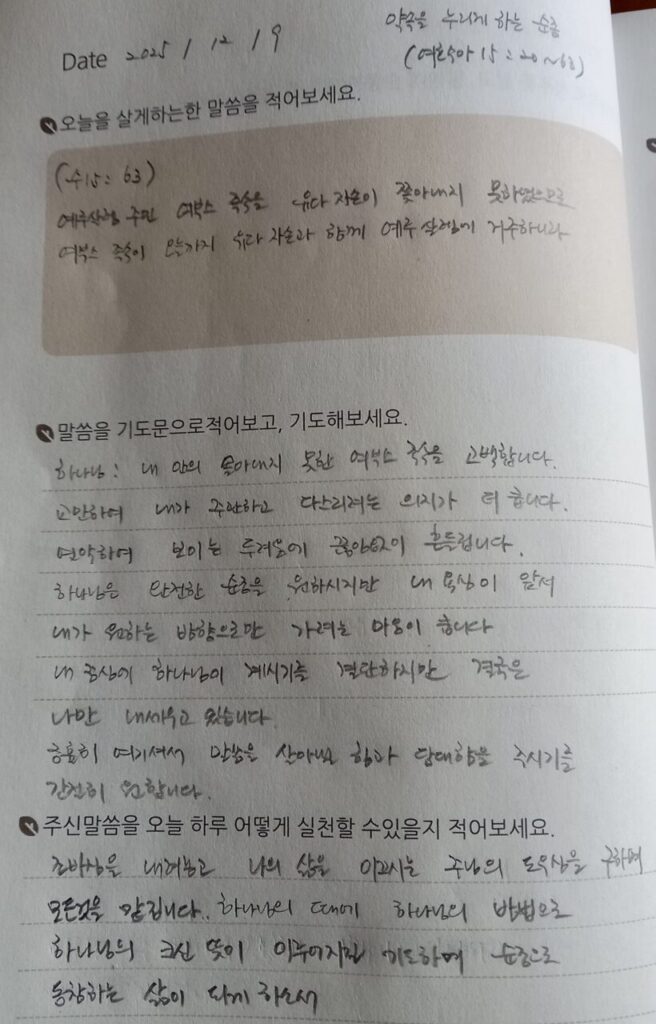 약속을 누리게 하는 순종
Date 2025 / 12 / 9
(여호수아 15 : 20 ~ 63)
오늘을 살게하는한 말씀을 적어보세요.
(수15 : 63)
예루살렘 주민 여부스 족속을 유다 자손이 쫓아내지 못하였으므로
여부스 족속이 오늘까지 유다 자손과 함께 예루살렘에 거주하니라
말씀을 기도문으로적어보고, 기도해보세요.
하나님 : 내 안의 쫓아내지 못한 여부스 족속을 고백합니다.
교만하여 내가 주관하고 다스리려는 의지가 더 큽니다.
연약하여 보이는 두려움에 끊임없이 흔들립니다.
하나님은 완전한 순종을 원하시지만 내 욕심이 앞서
내가 원하는 방향으로만 가려는 마음이 큽니다
내 중심에 하나님이 계시기를 결단하지만 결국은
나만 내세우고 있습니다.
긍휼히 여기셔서 말씀을 살아낼 힘과 담대함을 주시기를
간절히 원합니다.
주신말씀을 오늘 하루 어떻게 실천할 수있을지 적어보세요.
조바심을 내려놓고 나의 삶을 이끄시는 주님의 도우심을 구하며
모든것을 맡깁니다. 하나님의 때에 하나님의 방법으로
하나님의 크신 뜻이 이루어지길 기도하며 순종으로
동참하는 삶이 되게 하소서